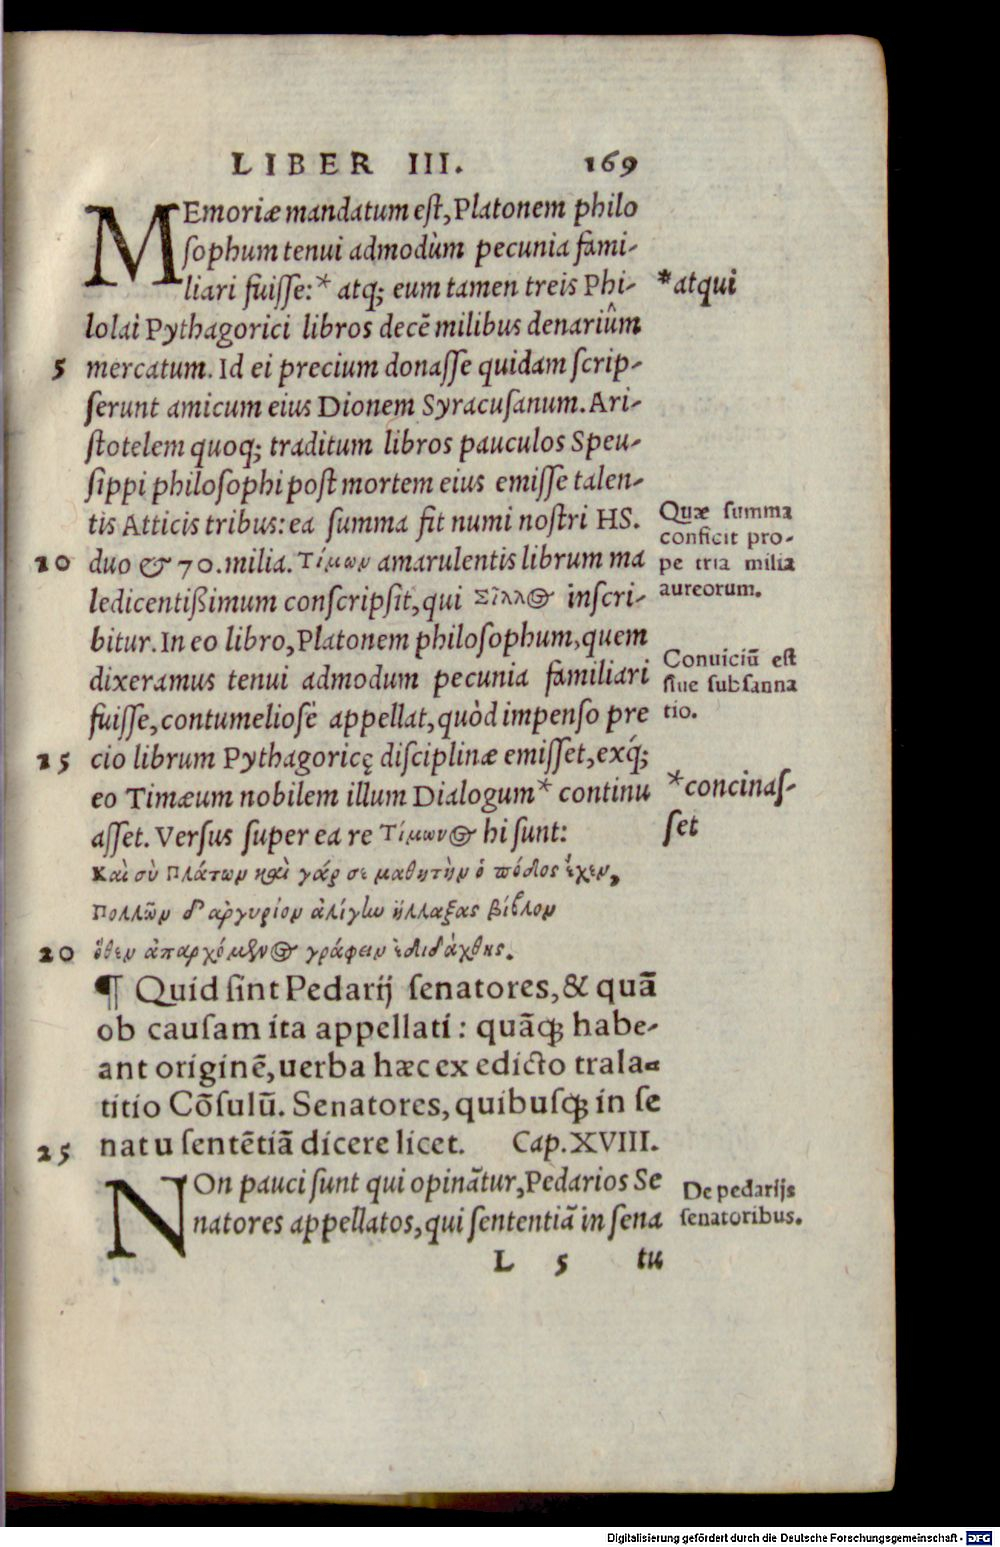 LIBER III. 169
MEmoriæ mandatum eſt, Platonem philo
ſophum tenui admodùm pecunia fami-
liari fuiſſe:* atq; eum tamen treis Phi-
*atqui
lolai Pythagorici libros decē milibus denariûm
5 mercatum. Id ei precium donaſſe quidam ſcrip-
ſerunt amicum eius Dionem Syracuſanum. Ari-
ſtotelem quoq; traditum libros pauculos Speu-
ſippi philoſophi poſt mortem eius emiſſe talen-
tis Atticis tribus: ea ſumma fit numi noſtri HS.
10 duo & 70. milia. Τίμων amarulentis librum ma
ledicentißimum conſcripſit, qui Σίλλος inſcri-
Quæ ſumma
conficit pro-
pe tria milia
aureorum.
bitur. In eo libro, Platonem philoſophum, quem
dixeramus tenui admodum pecunia familiari
fuiſſe, contumelioſè appellat, quòd impenſo pre
Conuiciū eſt
ſiue ſubſanna
tio.
15 cio librum Pythagoricę diſciplinæ emiſſet, exq́;
eo Timæum nobilem illum Dialogum* continu
aſſet. Verſus ſuper ea re Τίμωνος hi ſunt:
*concinaſ-
ſet
Καὶ σὺ Πλάτων καὶ γάρ σε μαθητὴν ὁ πόθος ἔχεν,
Πολλῶν δ' αργυρίον ἀλίγίω ἤλλαξας βίβλον
20 ὅθεν ἀπαρχόμενος γράφειν ἐδιδάχθης.
¶ Quid ſint Pedarij ſenatores, & quā
ob cauſam ita appellati: quāq; habe-
ant originē, uerba hæc ex edicto trala-
titio Cōſulū. Senatores, quibuſq; in ſe
25 natu ſentētiā dicere licet. Cap. XVIII.
NOn pauci ſunt qui opinātur, Pedarios Se
natores appellatos, qui ſententiā in ſena
De pedarijs
ſenatoribus.
L 5 tu
Digitalisierung gefördert durch die Deutsche Forschungsgemeinschaft - DFG